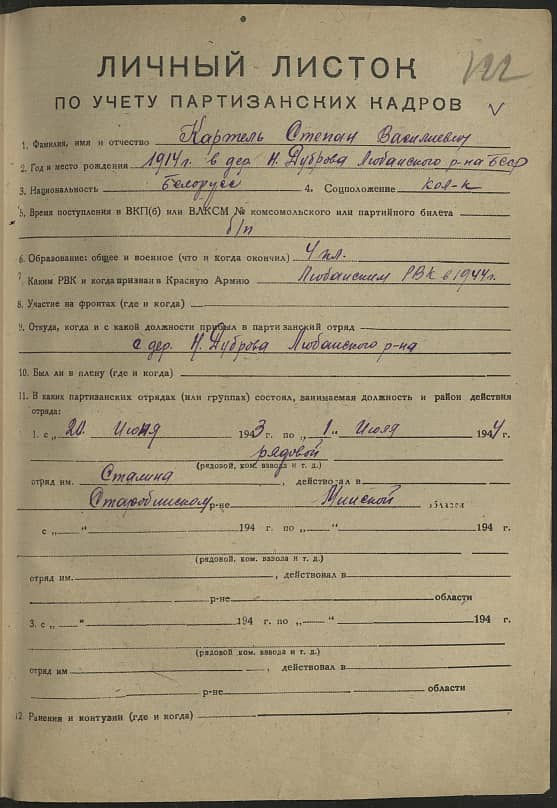 ЛИЧНЫЙ ЛИСТОК
122
ПО УЧЕТУ ПАРТИЗАНСКИХ КАДРОВ
1. Фамилия, имя и отчество Картель Степан Василиевич
2. Год и место рождения 1914 г. в дер. Н. Дуброва Любанского р-на БССР
3. Национальность Белорусс 4. Соцположение кол-к
5. Время поступления в ВКП(б) или ВЛКСМ № комсомольского или партийного билета
б/п
6. Образование: общее и военное (что и когда окончил) 4 кл.
7. Каким РВК и когда призван в Красную Армию Любанским РВК в 1944 г.
8. Участие на фронтах (где и когда)
9. Откуда, когда и с какой должности прибыл в партизанский отряд
с дер. Н. Дуброва Любанского р-на
10. Был ли в плену (где и когда)
11. В каких партизанских отрядах (или группах) состоял, занимаемая должность и район действия
отряда:
1. с „20 Июня 1943 г. по „1" Июля 1944 г.
рядовой
(рядовой, ком. взвода и т. д.)
отряд им. Сталина, действовал в
Старобинском р-не Минской области
с „ " 194 г. по „ " 194 г.
(рядовой, ком. взвода и т. д.)
отряд им. , действовал в
р-не области
3. с „ " 194 г. по „ " 194 г.
(рядовой, ком. взвода и т. д.)
отряд им , действовал в
р-не области
12. Ранения и контузии (где и когда)